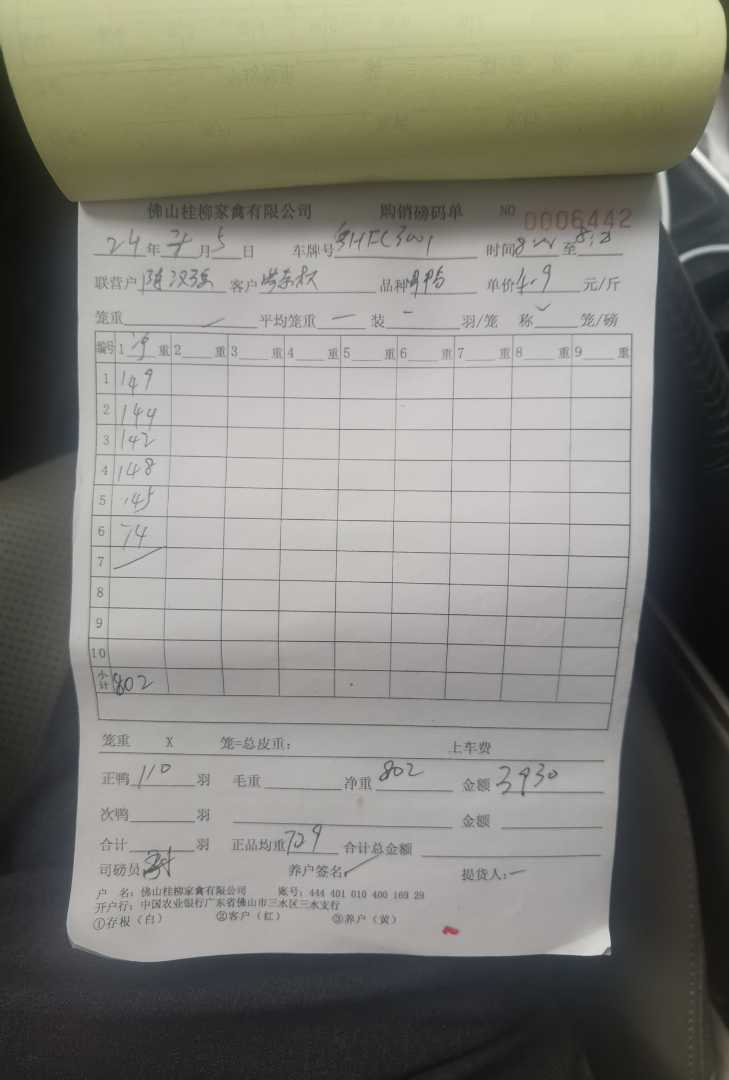 佛山桂柳家禽有限公司 购销磅码单 NO 0006442
24年 月5日 车牌号 时间 至
联营户 客户 品种 单价4.9元/斤
笼重 平均笼重 一 装 一 羽/笼 称 笼/磅
编号 1净重 2 重 3 重 4 重 5 重 6 重 7 重 8 重 9 重
1 149
2 144
3 142
4 148
5 145
6 74
7
8
9
10
小计 802
笼重 X 笼=总皮重: 上车费
正鸭 110 羽 毛重 净重 802 金额 3930
次鸭 羽 金额
合计 羽 正品均重 729 合计总金额
司磅员 养户签名: 提货人:一
户 名: 佛山桂柳家禽有限公司 账号: 444 401 010 400 169 29
开户行: 中国农业银行广东省佛山市三水区三水支行
①存根(白) ②客户(红) ③养户(黄)